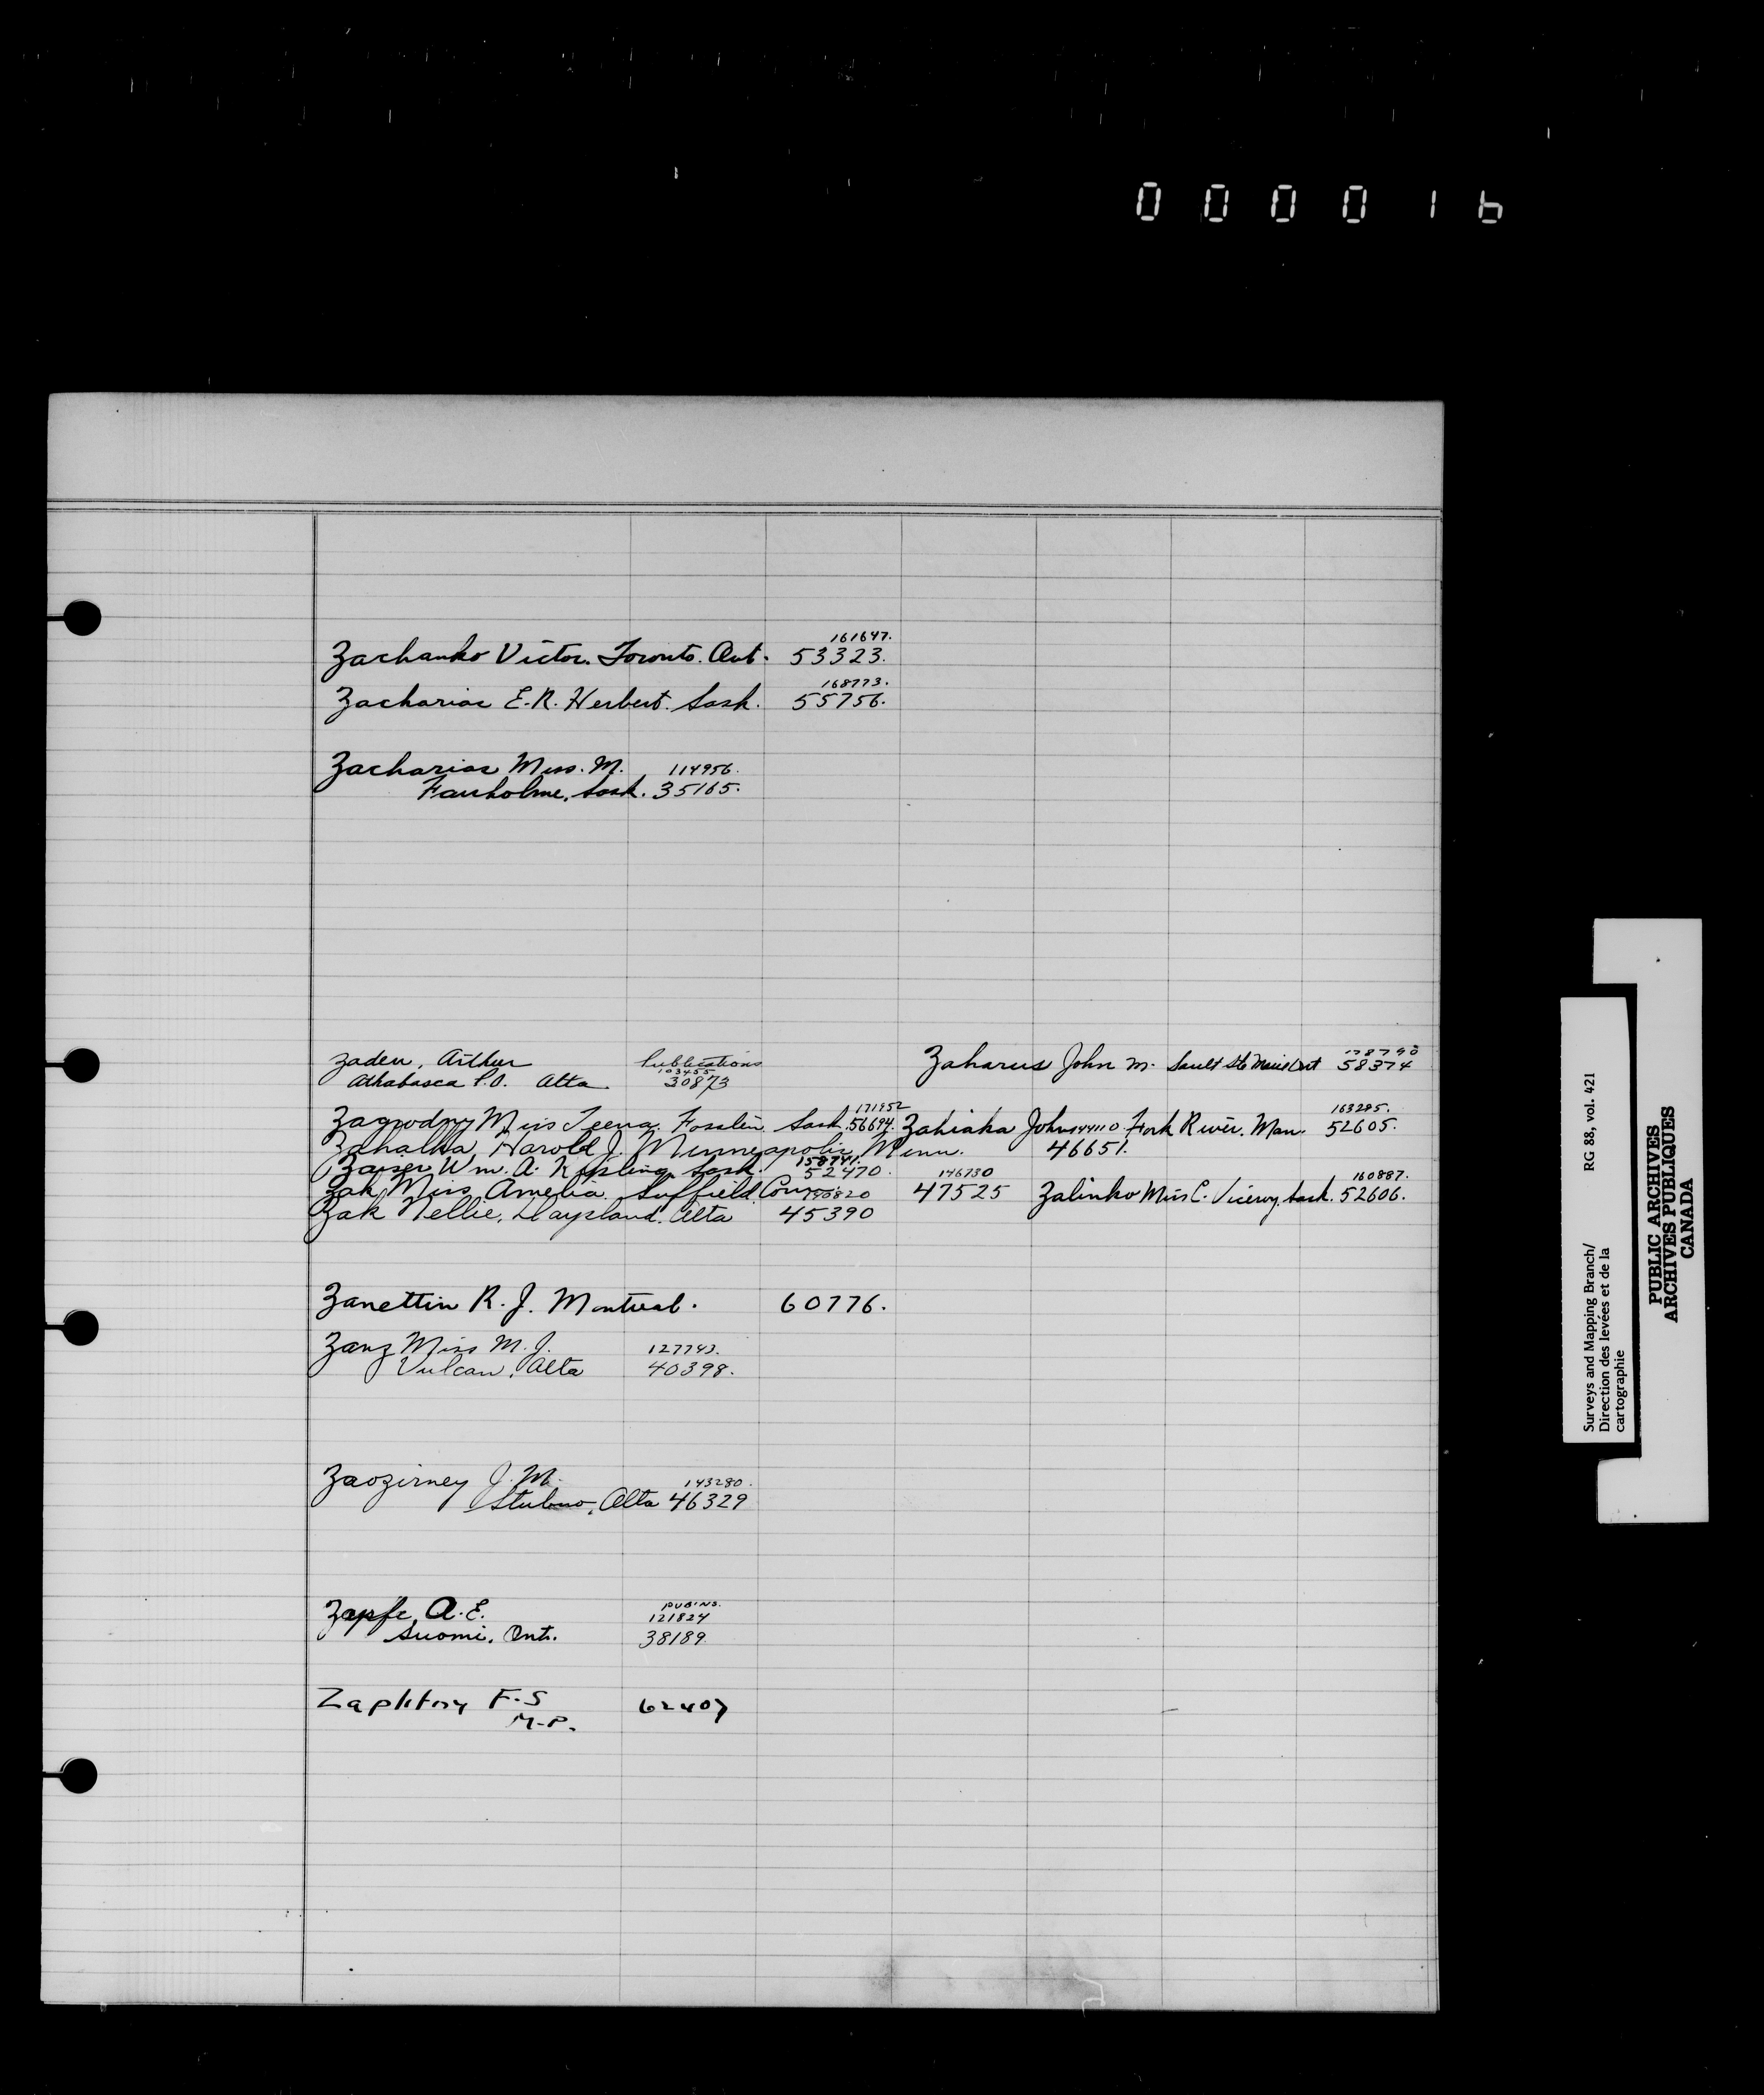 00001b
161647.
Zachanko Victor. Toronto. Ont. 53323.
168773.
Zacharias E.R. Herbert. Sask. 55756.
Zacharias Miss. M. 114956.
Fairholme, Sask. 35165.
Zaden, Arthur Publications
103455
Athabasca P.O. Alta. 30873
Zaharus John M. Sault Ste Marie Ont 58374
171952
Zagrodzy Miss Teena. Fosslin Sask. 56694.
163295.
Zahiaka John 144110 Fork River. Man. 52605.
Zahalka, Harold J. Minneapolis Minn. 46651.
158741.
Zaiser Wm. A. Kipling Sask. 52470.
146730
Zak Miss Amelia Suffield 47525
160887.
Zalinko Miss C. Viceroy. Sask. 52606.
Zak Nellie, Daysland. Alta 45390
Zanettin R. J. Montreal. 60776.
Zanz Miss M. J. 127743.
Vulcan, Alta 40398.
Zaozirney J. M. 143280.
Alta 46329
Zapfe, A. E. PUB'NS.
121824
Suomi, Ont. 38189.
Zaplitny F.S 62407
M.P.
Surveys and Mapping Branch/ RG 88, vol. 421
Direction des levées et de la
cartographie
PUBLIC ARCHIVES
ARCHIVES PUBLIQUES
CANADA